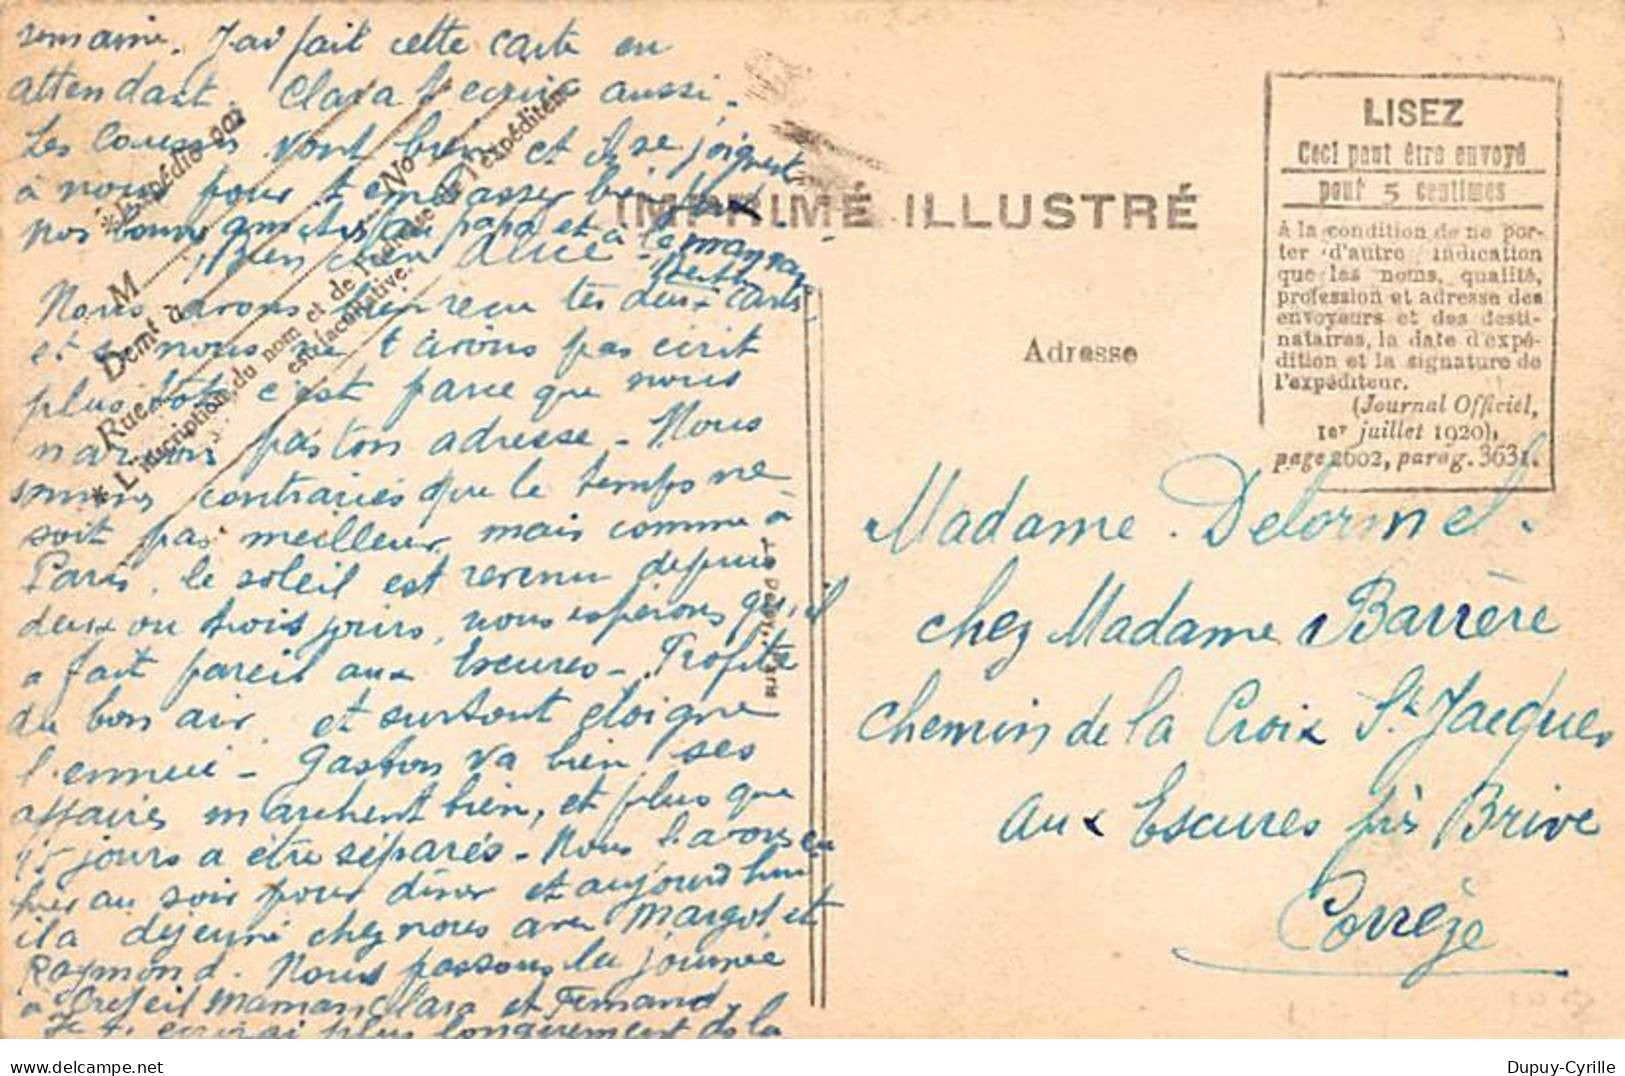 semaine. J'ai fait cette carte en
attendant. Clara t'ecrira aussi.
Les vont bien et se joignent
à nous pour t'embrasser bien fort
Nos bonnes amitiés au papa et à la
bien chère Alice
Nous avons bien reçu tes deux cartes
et si nous ne t'avons pas écrit
plus tôt c'est parce que nous
n'avions pas ton adresse - Nous
sommes contrariés que le temps ne
soit pas meilleur mais comme à
Paris, le soleil est revenu depuis
deux ou trois jours, nous espérons qu'il
a fait pareil aux Escures - Profite
du bon air, et surtout éloigne
l'ennui - Gaston va bien ses
affaires marchent bien, et plus que
15 jours a être séparés - Nous l'avons eu
hier au soir pour diner et aujourd'hui
il a dejeuné chez nous avec Margot et
Raymond. Nous passons la journée
à Creteil Maman Clara et Fernand,
Je t'ecrirai plus longuement de la
* Expédié par
M
Demt à
Rue No
* L'inscription du nom et de l'adresse de l'expéditeur
est facultative.
IMPRIMÉ ILLUSTRÉ
Adresse
LISEZ
Ceci peut être envoyé
pour 5 centimes
à la condition de ne por-
ter d'autre indication
que les noms, qualité,
profession et adresse des
envoyeurs et des desti-
nataires, la date d'expé-
dition et la signature de
l'expéditeur.
(Journal Officiel,
1er juillet 1920),
page 2602, parag. 3631.
Madame Delormel.
chez Madame Barrère
chemin de la Croix St Jacques
aux Escures près Brive
Corrèze
Dupuy-Cyrille